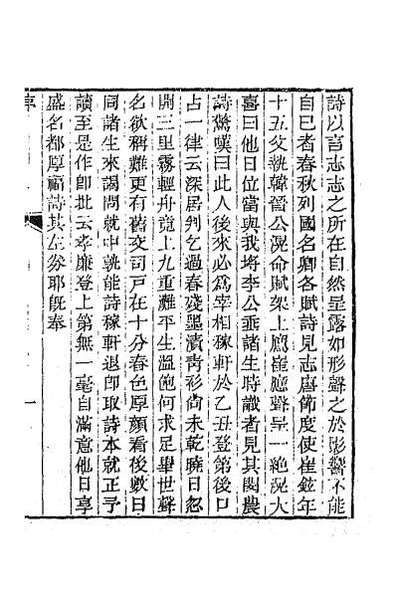 詩以言志志之所在自然呈露如形聲之於影響不能
自已者春秋列國名卿各賦詩見志唐節度使崔鉉年
十五父執韓晉公滉命賦架上鷹崔應聲呈一絶滉大
喜曰他日位當與我埒李公垂諸生時識者見其閔農
詩驚嘆曰此人後來必為宰相稼軒於乙丑登第後口
占一律云深居判乞過春殘墨漬靑衫尙未乾曉日忽
開三里霧輕舟竟上九重灘平生溫飽何求足畢世聲
名欲稱難更有舊交司戸在十分春色厚顏看後數日
同諸生來謁問就中孰能詩稼軒退卽取詩本就正予
讀至是作卽批云孝廉登上第無一毫自滿意他日享
盛名都厚福詩其左劵耶旣奉